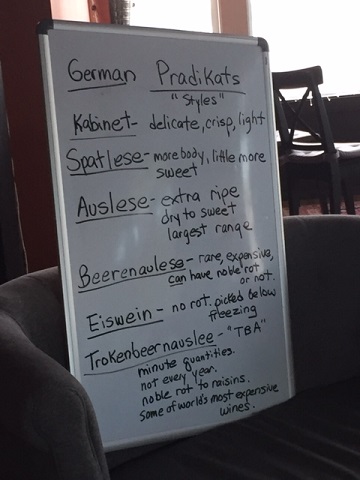 German Pradikats
"Styles"
Kabinet- delicate, crisp, light
Spatlese- more body, little more
sweet
Auslese- extra ripe
dry to sweet
largest range
Beerenaulese- rare, expensive,
can have noble rot
or not.
Eiswein- no rot. picked below
freezing
Trokenbeernauslee- "TBA"
minute quantities.
not every year.
noble rot to raisins.
some of world's most expensive
wines.